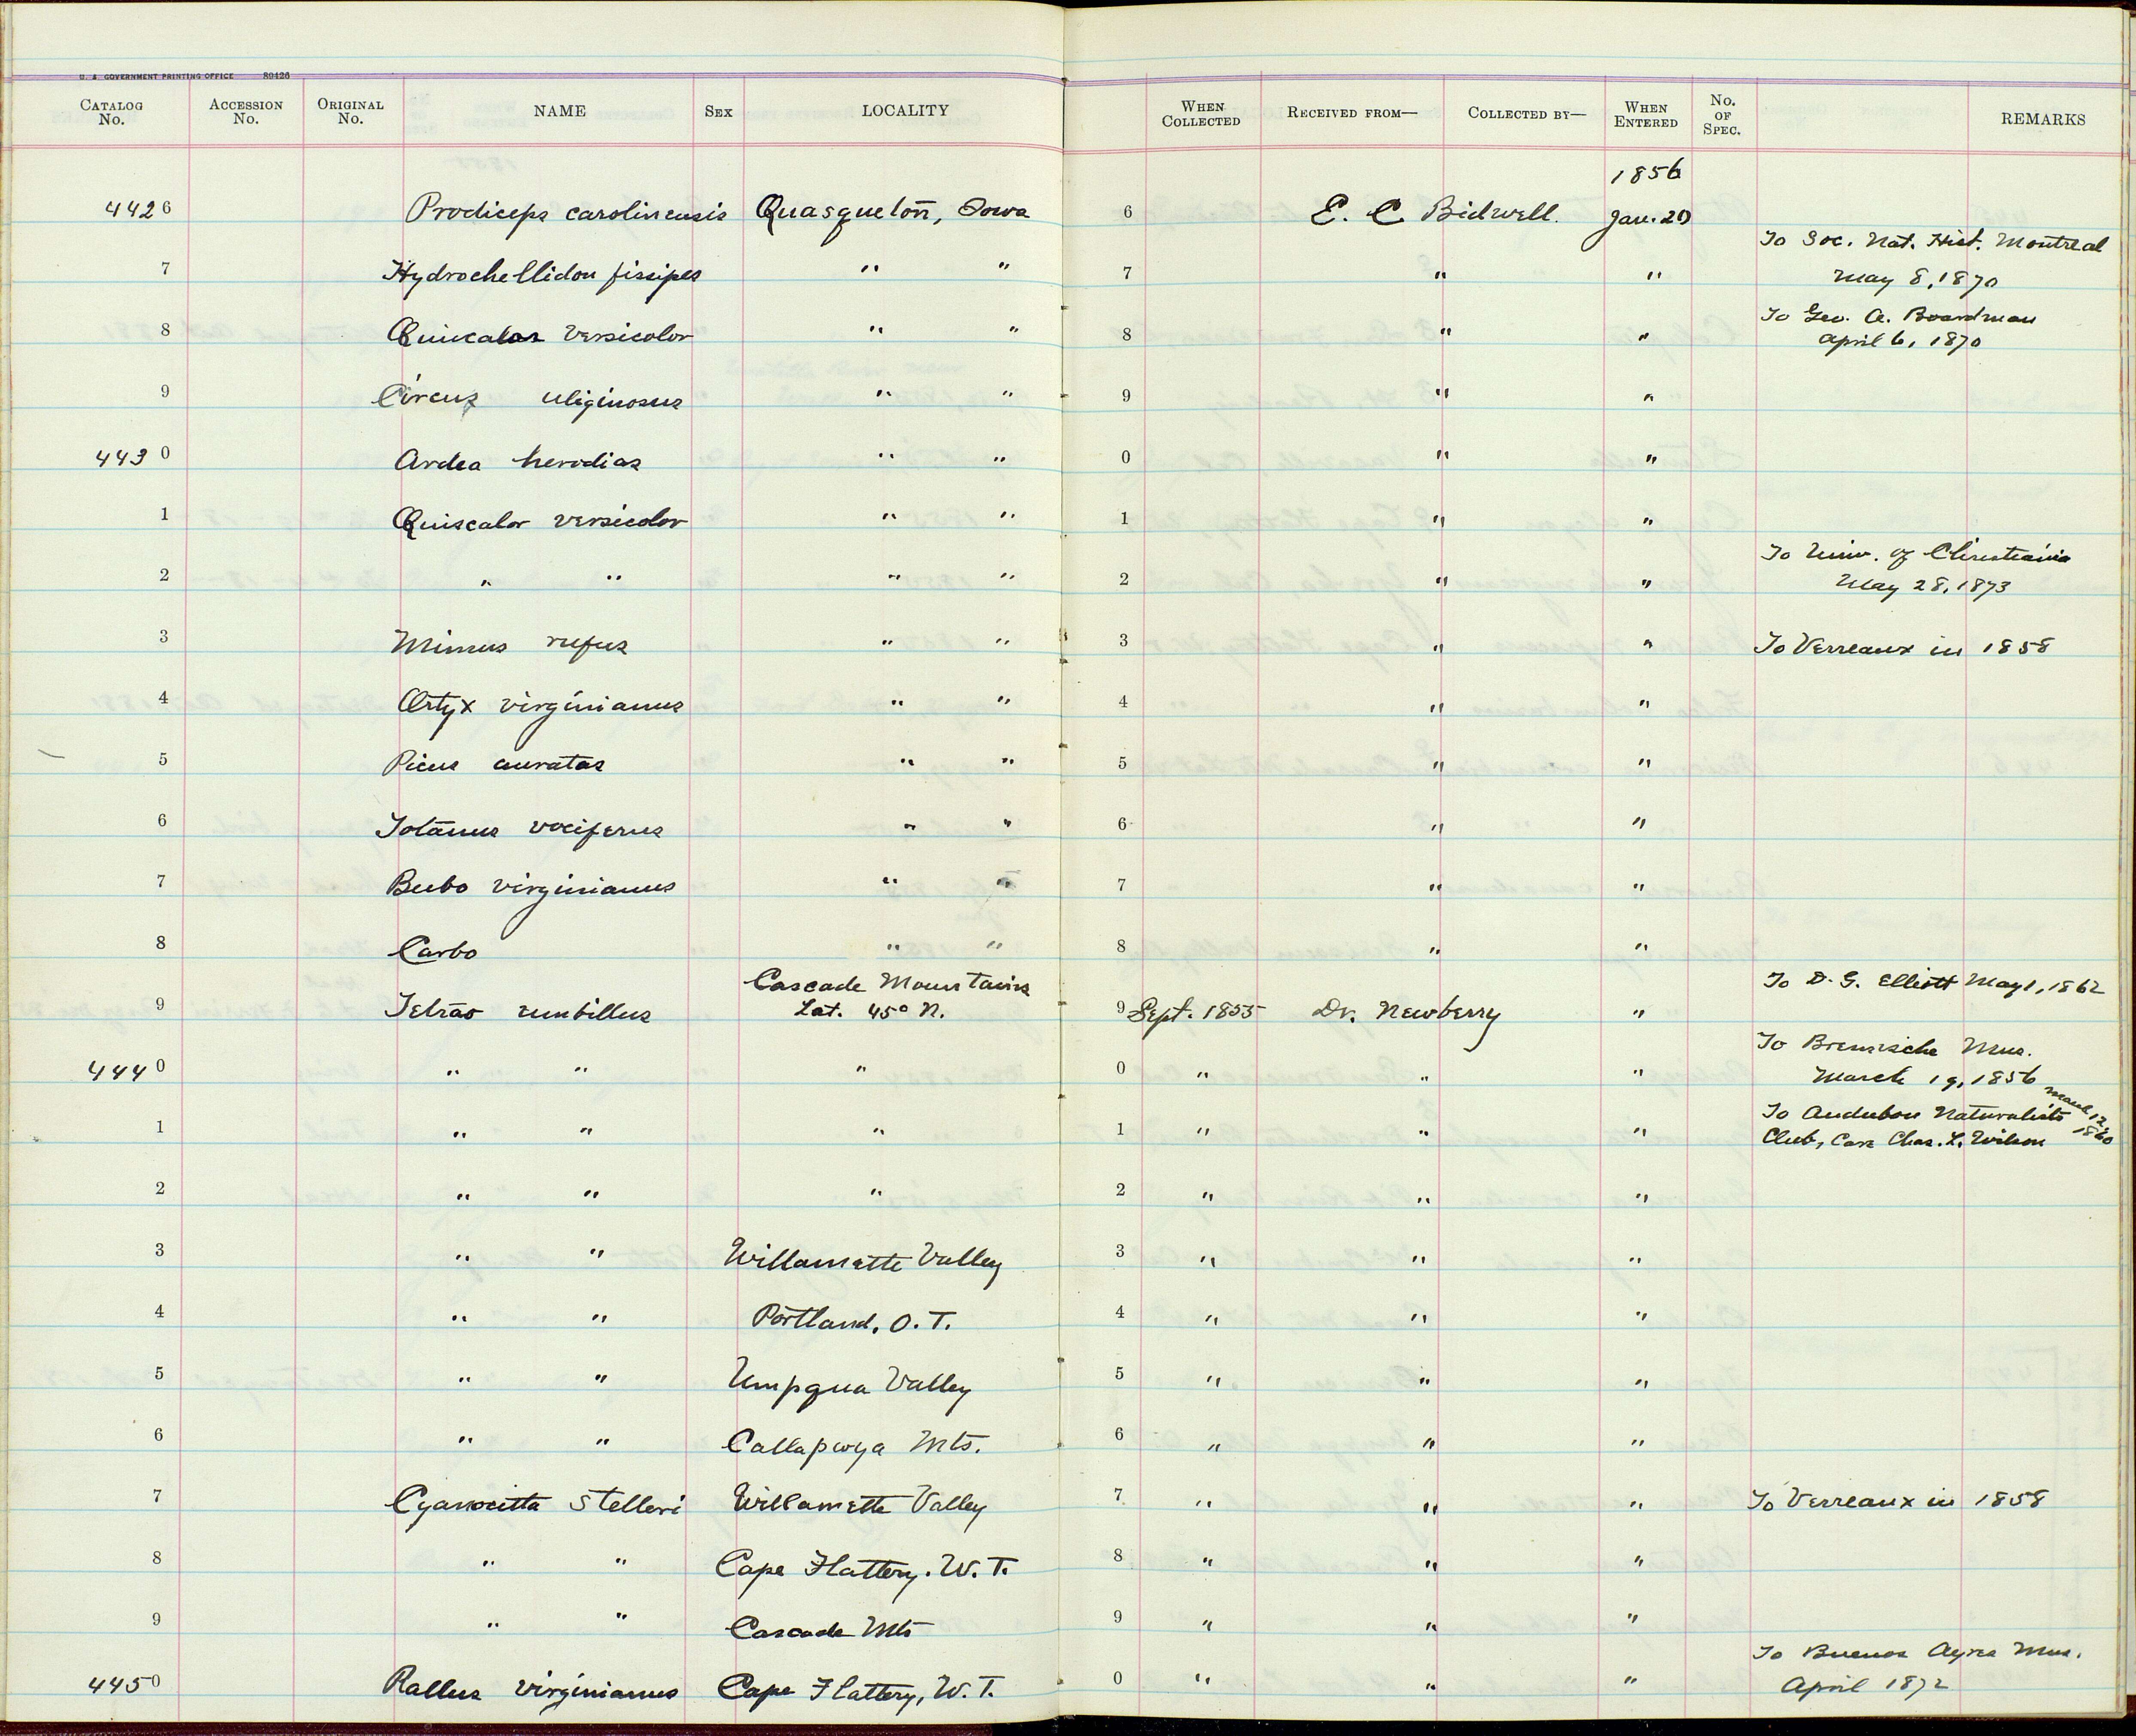 U. S. GOVERNMENT PRINTING OFFICE 89426
CATALOG No. ACCESSION No. ORIGINAL No. NAME SEX LOCALITY WHEN COLLECTED RECEIVED FROM— COLLECTED BY— WHEN ENTERED No. OF SPEC. REMARKS
1856
4426 Prodiceps carolinensis Quasqueton, Iowa 6 E. C. Bidwell. Jan. 20
To Soc. Nat. Hist. Montreal
7 Hydrochellidon fissipes " " 7 " " May 8, 1870
To Geo. A. Boardman
8 Quiscalus versicolor " " 8 " " April 6, 1870
9 Circus uliginosus " " 9 " "
4430 Ardea herodias " " 0 " "
1 Quiscalor versicolor " " 1 " "
To Univ. of Christiania
2 " " " " 2 " " May 28, 1873
3 Mimus rufus " " 3 " " To Verreaux in 1858
4 Ortyx virginianus " " 4 " "
5 Picus auratus " " 5 " "
6 Totanus vociferus " " 6 " "
7 Bubo virginianus " " 7 " "
8 Carbo " " 8 " "
Cascade Mountains To D. G. Elliott May 1, 1862
9 Tetrao umbillus Lat. 45° N. 9 Sept. 1855 Dr. Newberry "
To Bremische Mus.
4440 " " " 0 " " " March 19, 1856
To Audubon Naturalists March 12, 1860
1 " " " 1 " " " Club, Care Chas. L. Wilson
2 " " " 2 " " "
3 " " Willamette Valley 3 " " "
4 " " Portland, O. T. 4 " " "
5 " " Umpqua Valley 5 " " "
6 " " Callapuya Mts. 6 " " "
7 Cyanocitta Stelleri Willamette Valley 7 " " " To Verreaux in 1858
8 " " Cape Flattery. W. T. 8 " " "
9 " " Cascade Mts 9 " " "
To Buenos Ayres Mus.
4450 Rallus virginianus Cape Flattery, W. T. 0 " " " April 1872